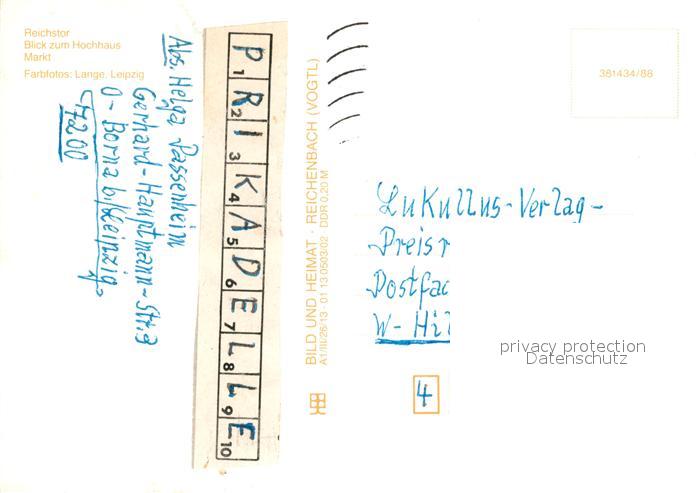 Reichstor
Blick zum Hochhaus
Markt
Farbfotos: Lange, Leipzig
Abs. Helga Passenheim
Gerhard-Hauptmann-Str. 3
O-Borna b./Leipzig
7200
P R I K A D E L L E
1 2 3 4 5 6 7 8 9 10
BILD UND HEIMAT · REICHENBACH (VOGTL)
A1/III/26/13-01 13 0503/02 DDR 0,20 M
381434/88
Lukullus-Verlag-
Preisr
Postfac
W-Hil
4
privacy protection
Datenschutz